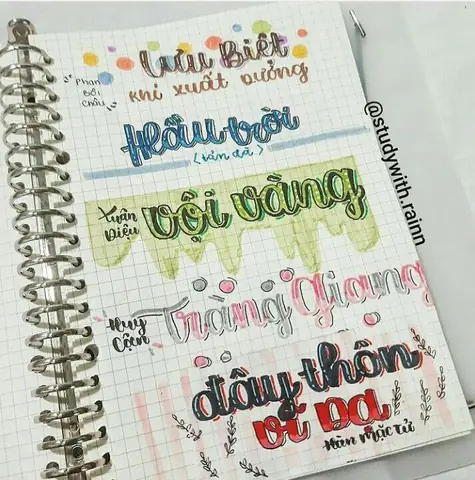 Lưu Biệt
Phan Bội Châu
khi xuất dương
Hầu trời
(tản đà)
Xuân Diệu
vội vàng
Huy Cận
Tràng Giang
đây thôn
vĩ dạ
Hàn Mặc Tử
@studywith.rainn